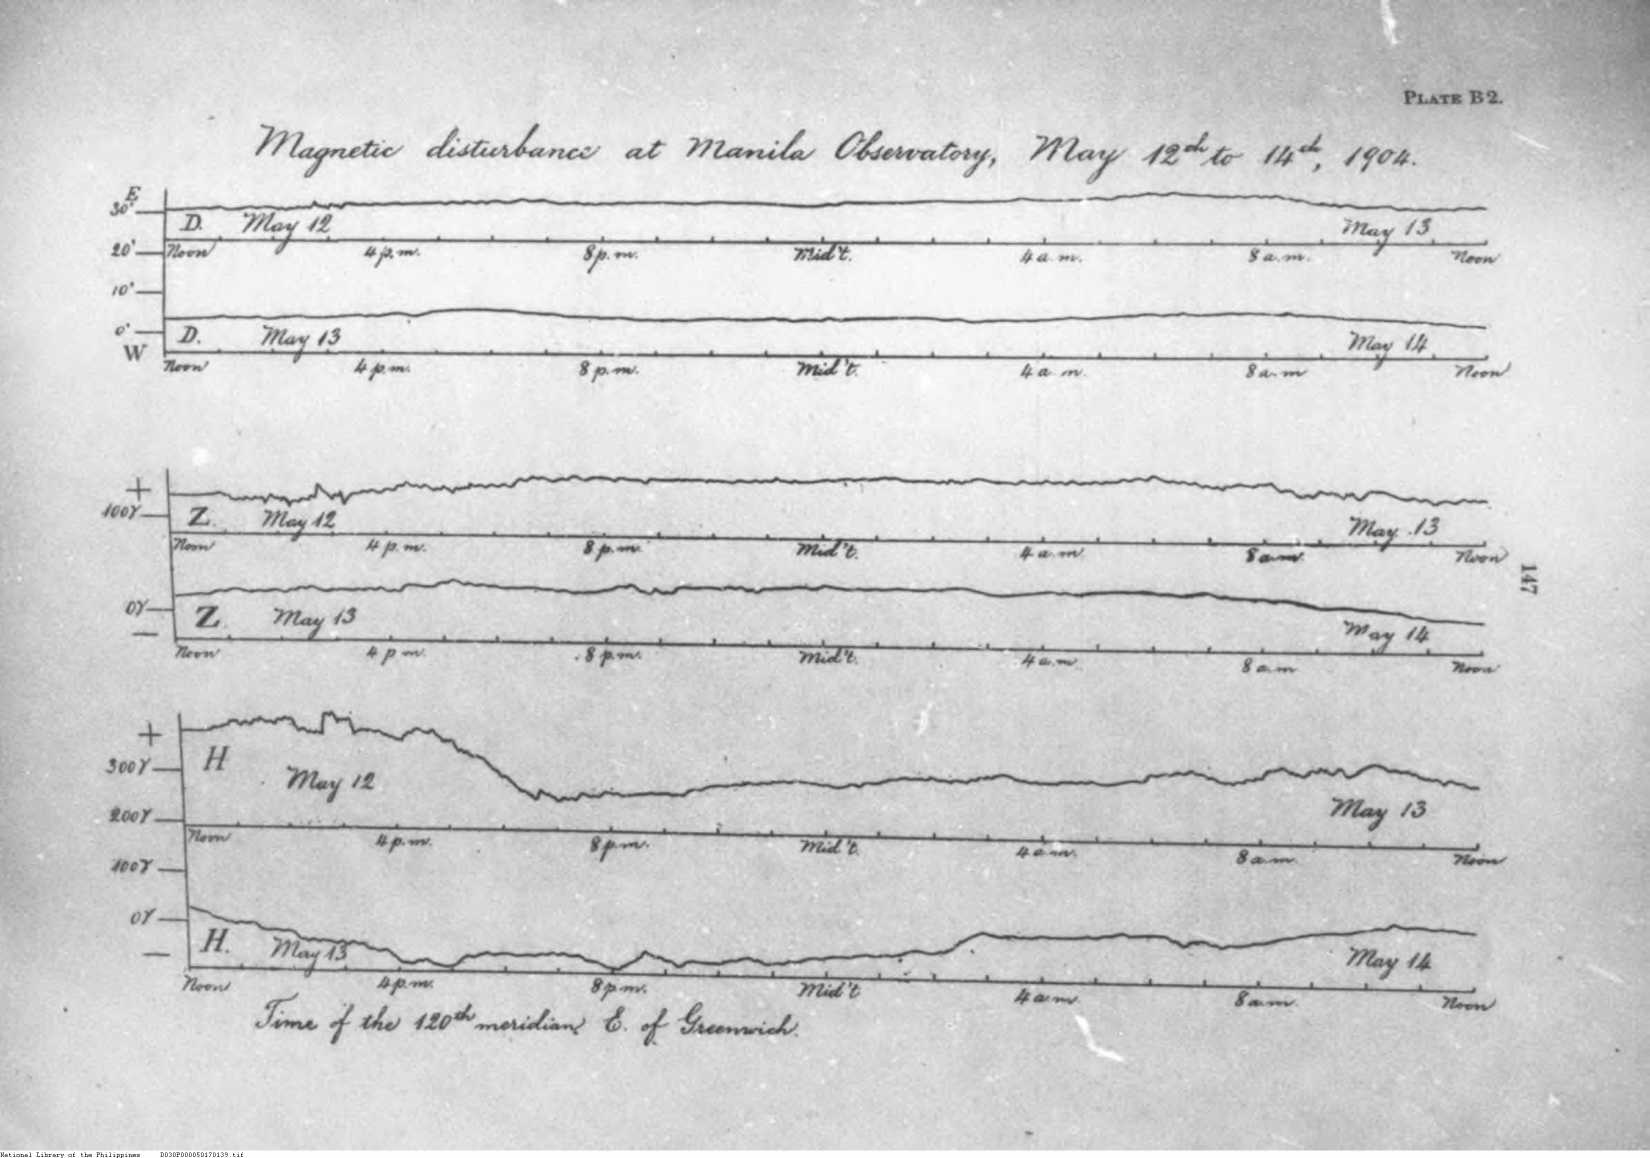 PLATE B2.
Magnetic disturbance at Manila Observatory, May 12th to 14th, 1904.
E
30'
D. May 12 May 13
20'
Noon 4 p.m. 8 p.m. Mid't. 4 a.m. 8 a.m. Noon
10'
0'
D. May 13 May 14
W
Noon 4 p.m. 8 p.m. Mid't. 4 a.m. 8 a.m Noon
+
100γ
Z. May 12 May 13
Noon 4 p.m. 8 p.m. Mid't. 4 a.m. 8 a.m. Noon
147
0γ
Z. May 13 May 14
—
Noon 4 p.m. 8 p.m. Mid't. 4 a.m. 8 a.m Noon
+
H
300γ
May 12 May 13
200γ
Noon 4 p.m. 8 p.m. Mid't. 4 a.m. 8 a.m Noon
100γ
0γ
H. May 13 May 14
—
Noon 4 p.m. 8 p.m. Mid't 4 a.m. 8 a.m. Noon
Time of the 120th meridian E. of Greenwich.
National Library of the Philippines D030P000050170139.tif